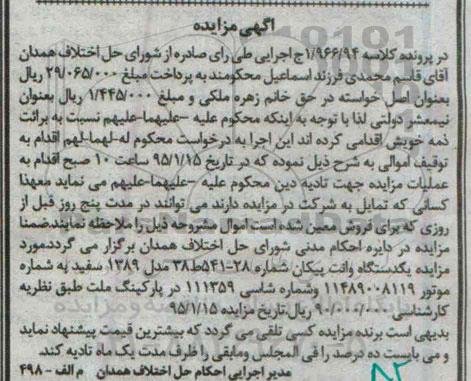 آگهی مزایده
در پرونده کلاسه ۱/۹۶۶/۹۴ج اجرایی طی رای صادره از شورای حل اختلاف همدان
آقای قاسم محمدی فرزند اسماعیل محکومند به پرداخت مبلغ ۲۹/۰۶۵/۰۰۰ ریال
بعنوان اصل خواسته در حق خانم زهره ملکی و مبلغ ۱/۴۴۵/۰۰۰ ریال بعنوان
نیمعشر دولتی لذا با توجه به اینکه محکوم علیه -علیهما-علیهم نسبت به برائت
ذمه خویش اقدامی کرده اند این اجرا به درخواست محکوم له-لهما-لهم اقدام به
توقیف اموالی به شرح ذیل نموده که در تاریخ ۹۵/۱/۱۵ ساعت ۱۰ صبح اقدام به
عملیات مزایده جهت تادیه دین محکوم علیه -علیهما-علیهم می نماید معهذا
کسانی که تمایل به شرکت در مزایده دارند می توانند در مدت پنج روز قبل از
روزی که برای فروش معین شده است اموال مشروحه ذیل را ملاحظه نمایند.ضمنا
مزایده در دایره احکام مدنی شورای حل اختلاف همدان برگزار می گردد.مورد
مزایده یکدستگاه وانت پیکان شماره ۲۸-۵۴۱ط۳۸ مدل ۱۳۸۹ سفید به شماره
موتور ۱۱۴۸۹۰۰۸۱۱۹ وشماره شاسی ۱۱۱۳۵۹ در پارکینگ ملت طبق نظریه
کارشناسی ۹۰/۰۰۰/۰۰۰ ریال.تاریخ مزایده ۹۵/۱/۱۵
بدیهی است برنده مزایده کسی تلقی می گردد که بیشترین قیمت پیشنهاد نماید
و می بایست ده درصد را فی المجلس ومابقی را ظرف مدت یک ماه تادیه کند.
مدیر اجرایی احکام حل اختلاف همدان م الف - ۴۹۸